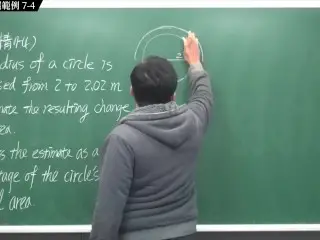 範例 7-4
dius of a circle is
sed from 2 to 2.02 m
mate the resulting change
ea.
s the estimate as a
tage of the circle's
area
2